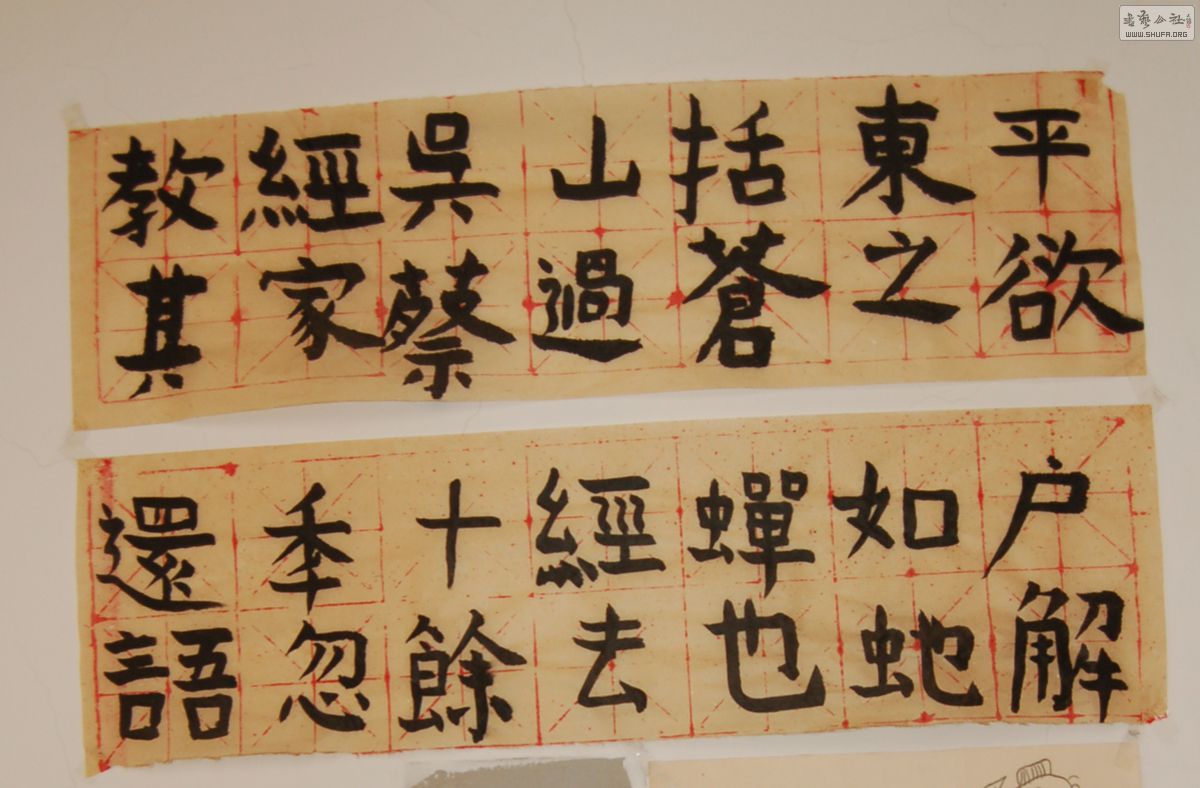 平欲
東之
括蒼
山過
吳蔡
經家
教其
户解
如虵
蟬也
經去
十餘
秊忽
還語
書藝公社
WWW.SHUFA.ORG